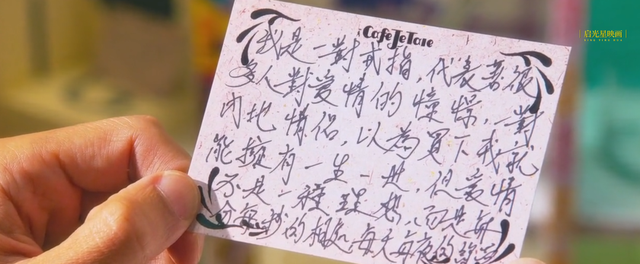 启光星映画
我是一對戒指,代表著很
多人對愛情的憧憬,一對
情侶,以為買下我就
能擁有一生一世,但愛情
不是一種理想,而是每
分每秒的相處,每天每夜的